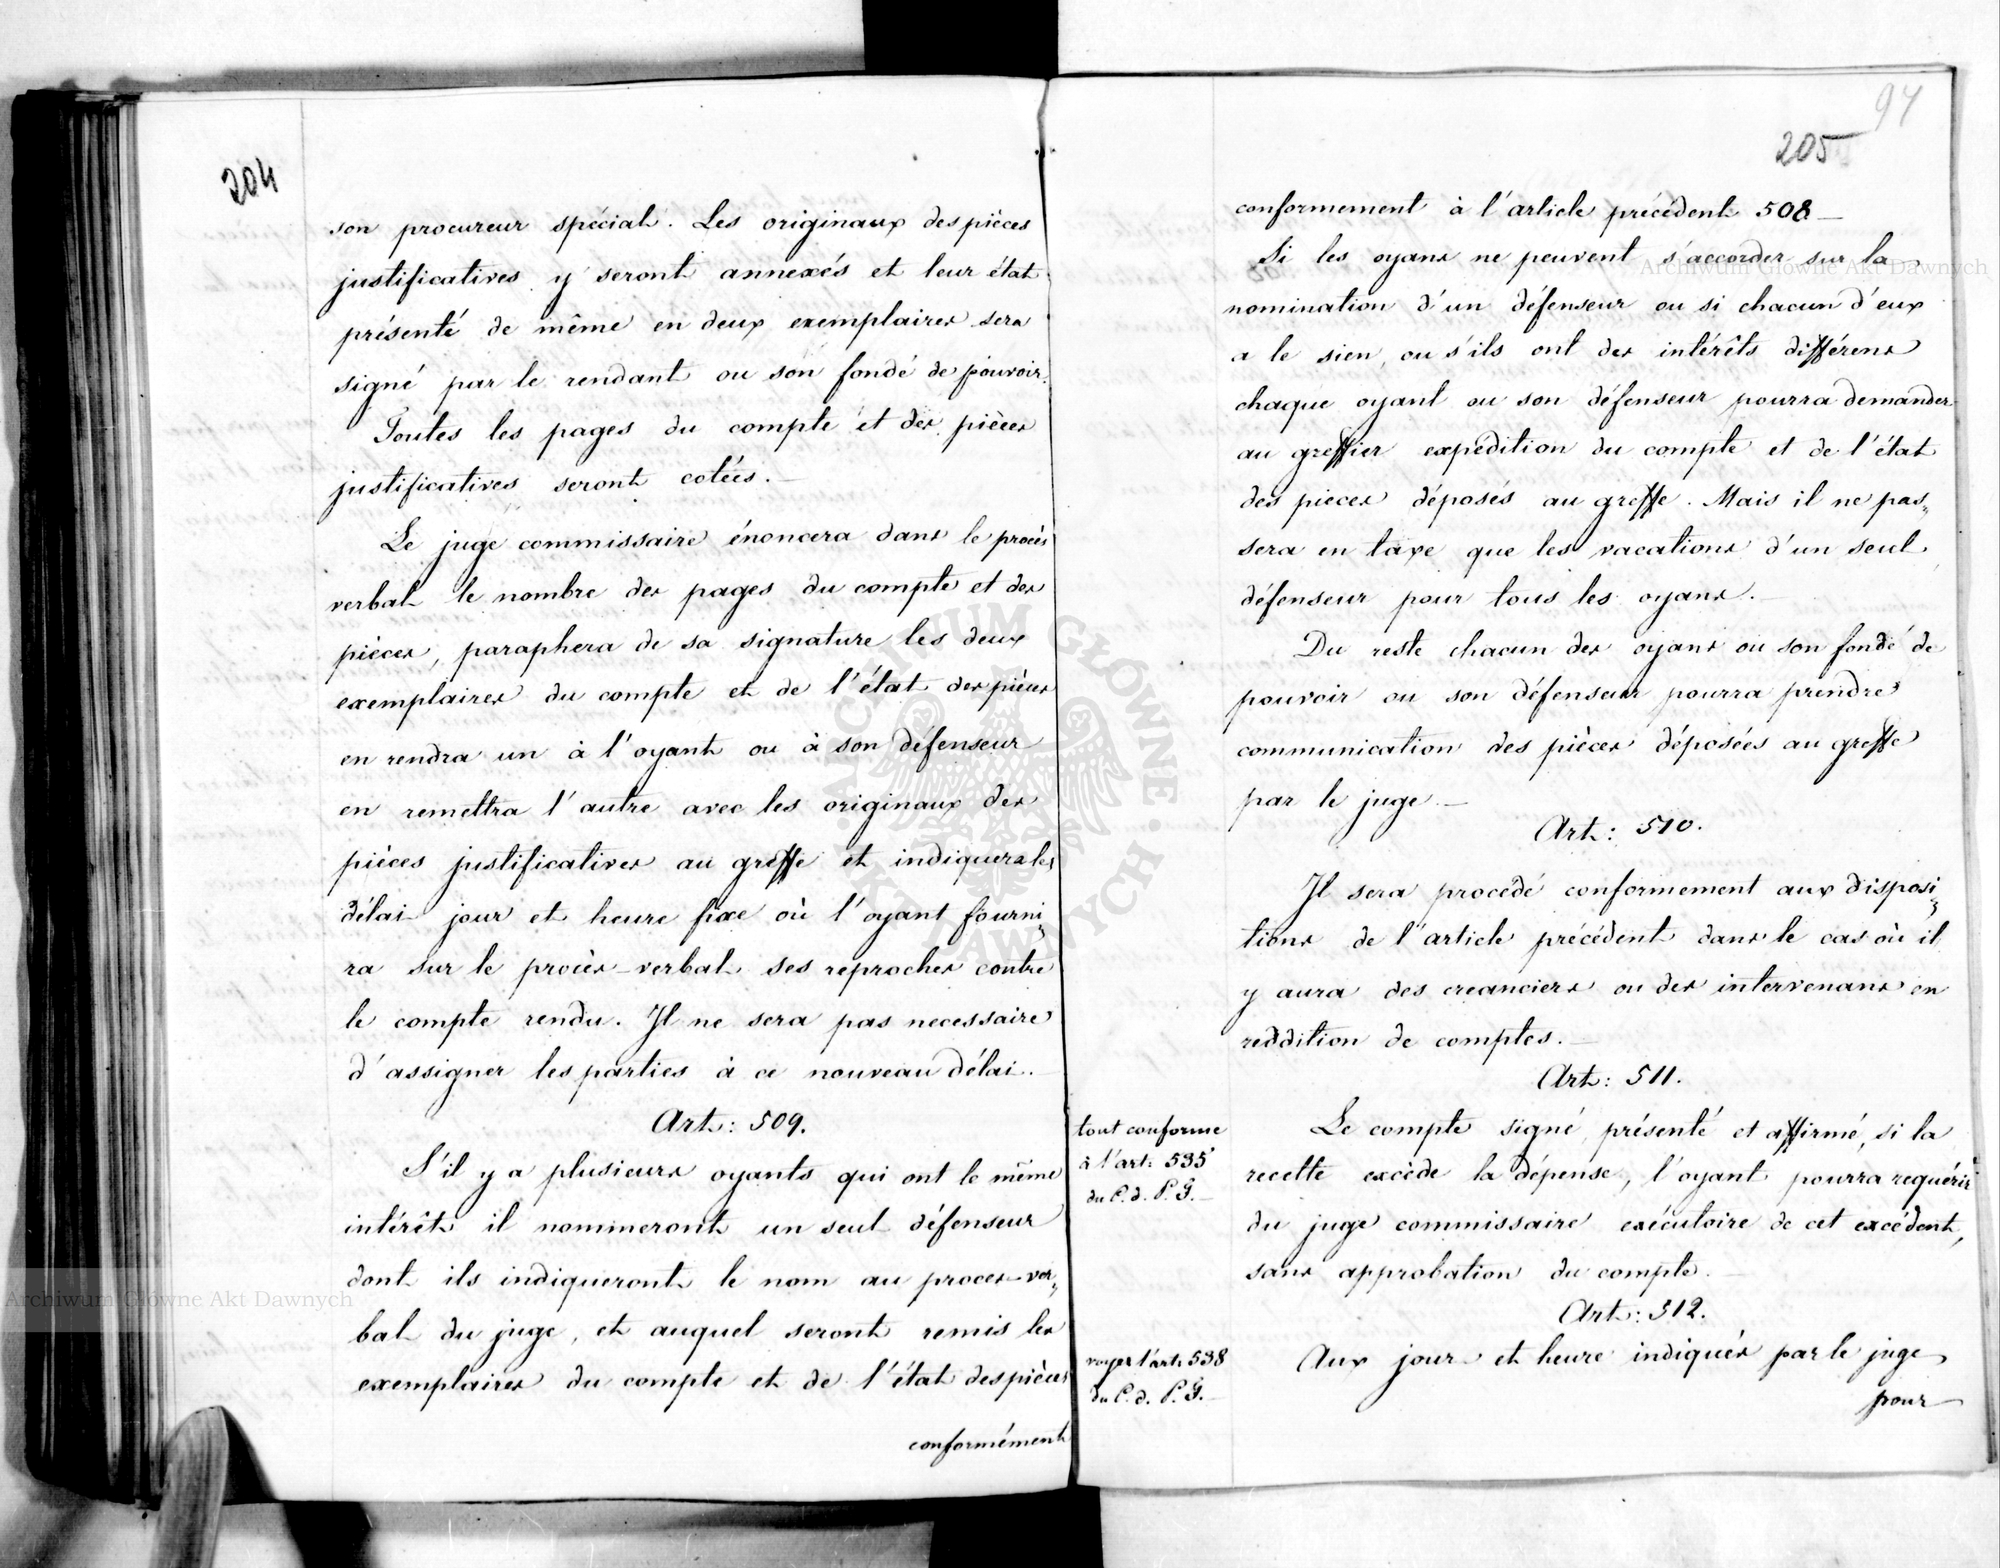 204
son procureur spécial. Les originaux des pièces
justificatives y seront annexés et leur état
présenté de même en deux exemplaires sera
signé par le rendant ou son fondé de pouvoir.
Toutes les pages du compte et des pièces
justificatives seront cotées. —
Le juge commissaire énoncera dans le procès
verbal le nombre des pages du compte et des
pièces, paraphera de sa signature les deux
exemplaires du compte et de l'état des pièces
en rendra un à l'oyant ou à son défenseur
en remettra l'autre avec les originaux des
pièces justificatives au greffe et indiquera les
délai jour et heure fixe où l'oyant fourni⸗
ra sur le procès-verbal ses reproches contre
le compte rendu. Il ne sera pas necessaire
d'assigner les parties à ce nouveau délai. —
Art: 509.
S'il y a plusieurs oyants qui ont le même
intérêt il nommeront un seul défenseur
dont ils indiqueront le nom au proces-ver⸗
bal du juge, et auquel seront remis les
exemplaires du compte et de l'état des pièces
conformément
94
205
conformement à l'article précédent 508 —
Si les oyans ne peuvent s'accorder sur la
nomination d'un défenseur ou si chacun d'eux
a le sien, ou s'ils ont des intérêts différens
chaque oyant ou son défenseur pourra demander
au greffier expédition du compte et de l'état
des pieces déposés au greffe. Mais il ne pas⸗
sera en taxe que les vacations d'un seul
défenseur pour tous les oyans. —
Du reste chacun des oyans ou son fondé de
pouvoir ou son défenseur pourra prendre
communication des pièces déposées au greffe
par le juge —
Art: 510.
Il sera procédé conformement aux disposi⸗
tions de l'article précédent dans le cas où il
y aura des creanciers ou des intervenans en
reddition de comptes. —
Art: 511.
tout conforme
à l'art: 535
du C. d. P. F. —
Le compte signé, présenté et affirmé, si la
recette excède la dépense, l'oyant pourra requérir
du juge commissaire exécutoire de cet excédent,
sans approbation du compte. —
Art: 512.
voyez l'art: 538
du C. d. P. F. —
Aux jour et heure indiqués par le juge
pour
Archiwum Główne Akt Dawnych
Archiwum Główne Akt Dawnych
ARCHIWUM GŁÓWNE · AKT DAWNYCH ·